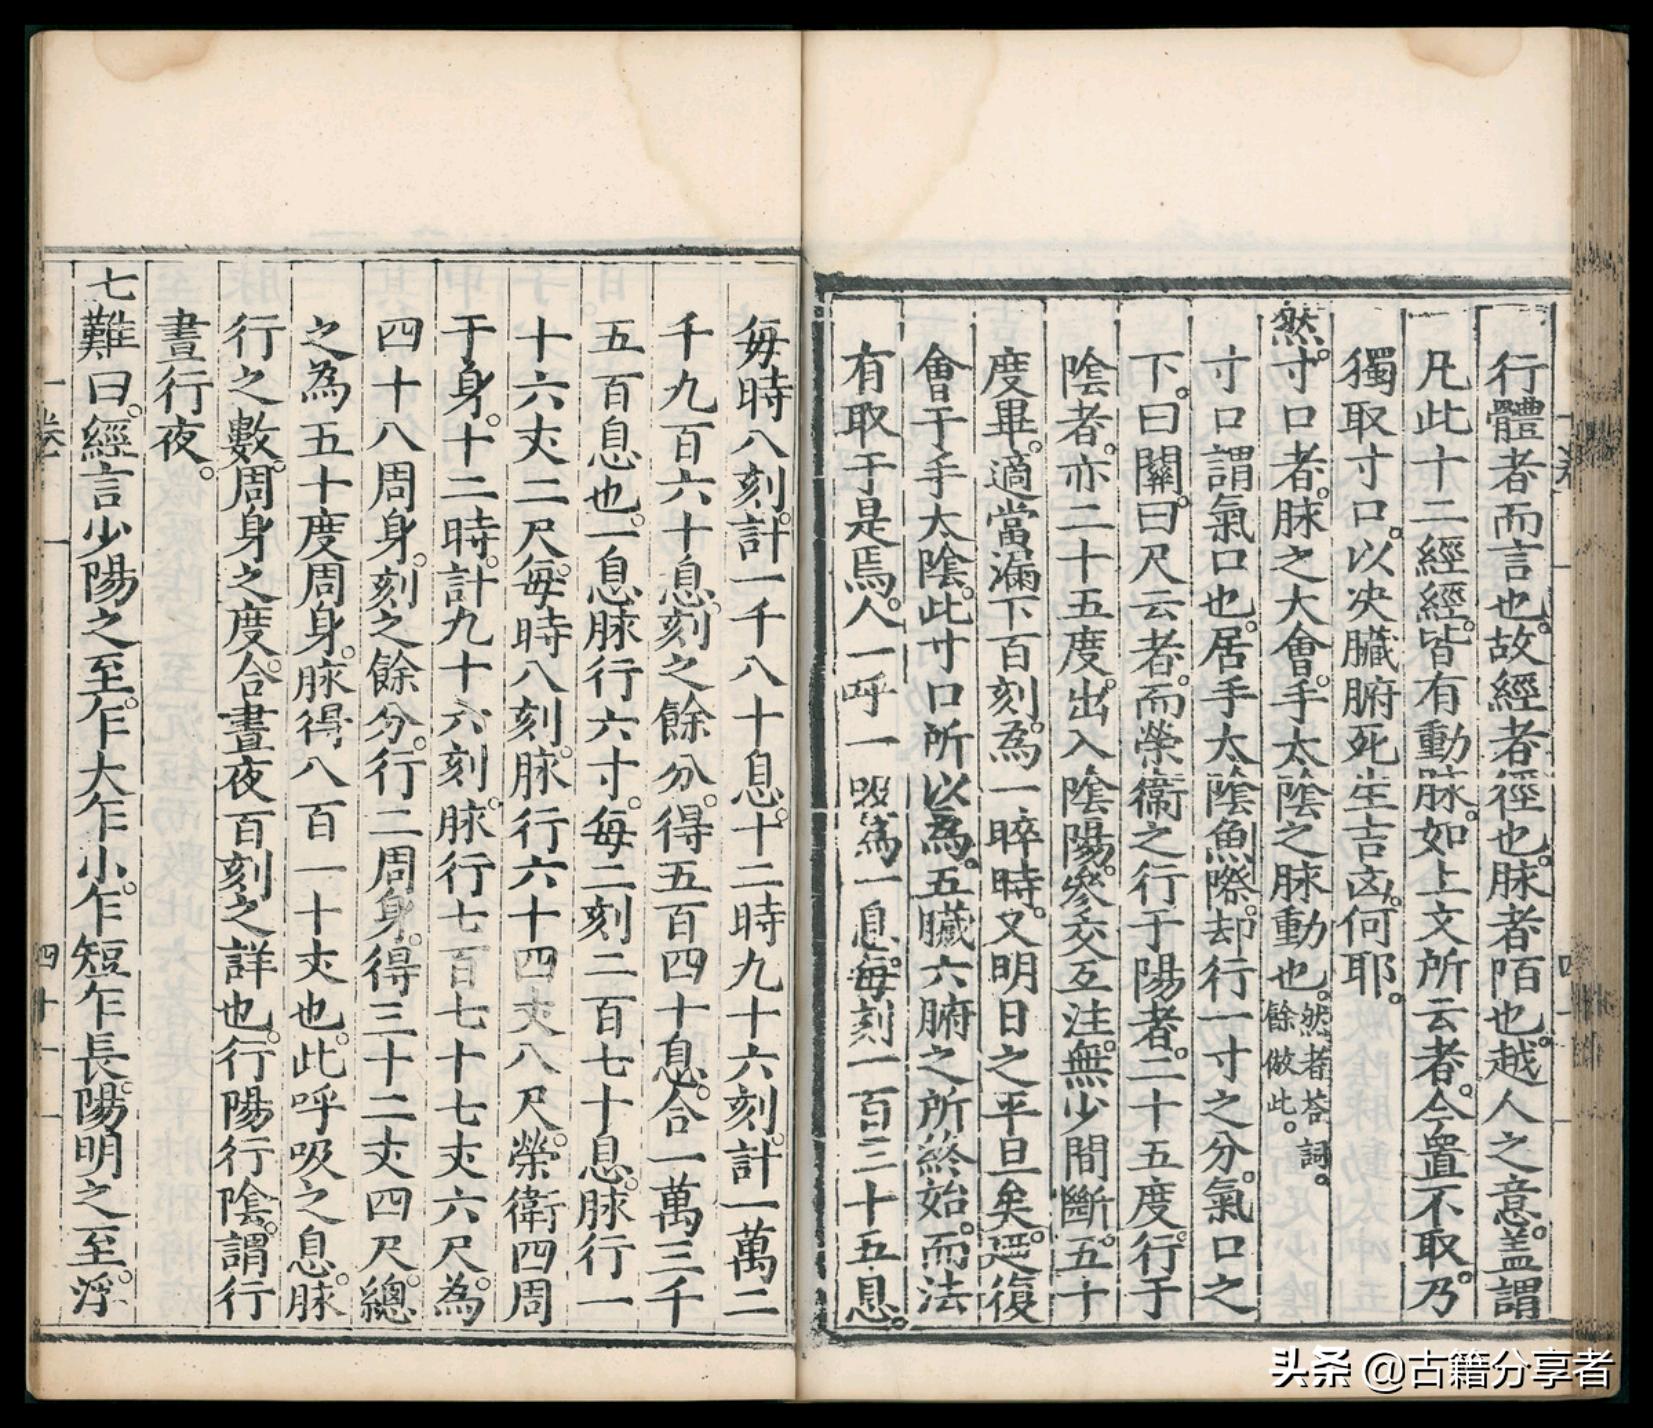 行體者而言也。故經者徑也。脉者陌也。越人之意。盖謂
一凡此十二經經。皆有動脉。如上文所云者。今置不取。乃
獨取寸口。以决臟腑死生吉凶。何耶。
然。寸口者。脉之大會。手太陰之脉動也。然者荅詞。餘倣此。
寸口謂氣口也。居手太陰魚際。却行一寸之分。氣口之
下。曰關。曰尺云者。而榮衞之行于陽者。二十五度。行于
陰者。亦二十五度。出入陰陽。參交互注。無少間斷。五十
度畢。適當漏下百刻。為一晬時。又明日之平旦矣。廼復
會于手太陰。此寸口所以為。五臟六腑之所終始。而法
有取于是焉。人一呼一吸。為一息。每刻一百三十五息。
每時八刻。計一千八十息。十二時九十六刻。計一萬二
千九百六十息。刻之餘分。得五百四十息。合一萬三千
五百息也。一息脉行六寸。每二刻二百七十息。脉行一
十六丈二尺。每時八刻。脉行六十四丈八尺。榮衛四周
于身。十二時。計九十六刻。脉行七百七十七丈六尺。為
四十八周身。刻之餘分。行二周身。得三十二丈四尺。總
之為五十度周身。脉得八百一十丈也。此呼吸之息。脉
行之數。周身之度。合晝夜百刻之詳也。行陽行陰。謂行
晝行夜。
七難曰。經言少陽之至。乍大乍小。乍短乍長。陽明之至。浮
一卷
四十一
头条 @古籍分享者